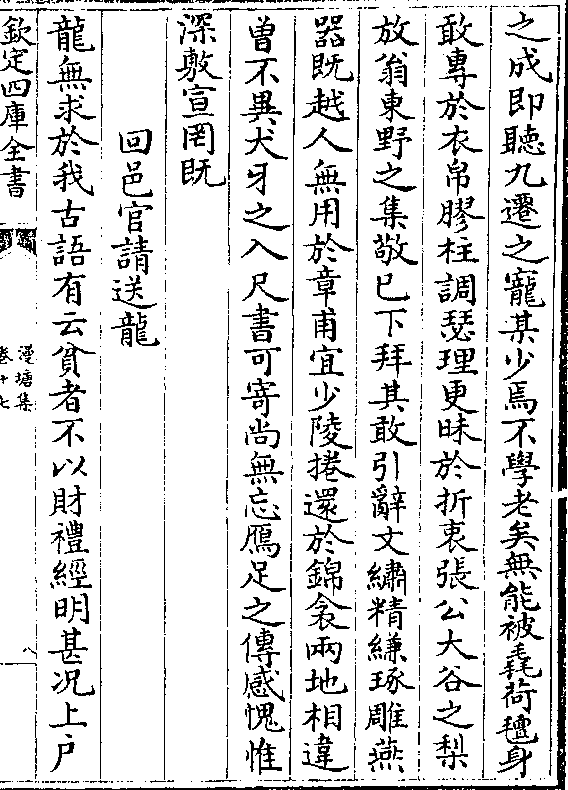 之成即聽九遷之寵某少焉不學老矣無能被毳荷氊身
敢專於衣帛膠柱調瑟理更昧於折衷張公大谷之梨
放翁東野之集敬已下拜其敢引辭文繡精縑琢雕燕
器既越人無用於章甫宜少陵捲還於錦衾兩地相違
曾不異犬牙之入尺書可寄尚無忘鴈足之傳感愧惟
深敷宣罔既
回邑官請送龍
龍無求於我古語有云貧者不以財禮經明甚况上户
欽定四庫全書
漫塘集
卷十七
八